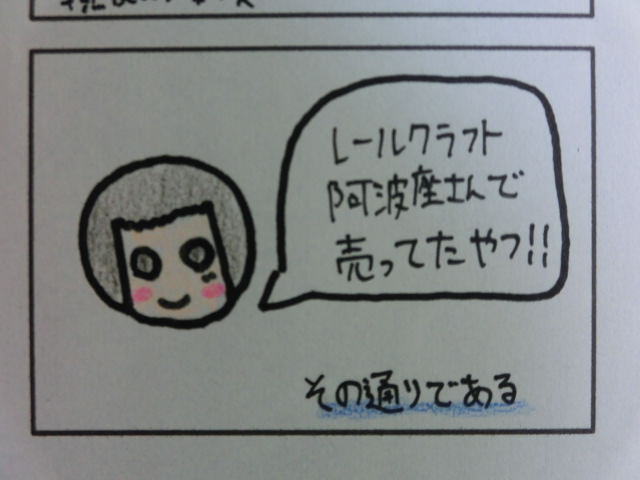 レールクラフト
阿波座さんで
売ってたやつ!!
その通りである